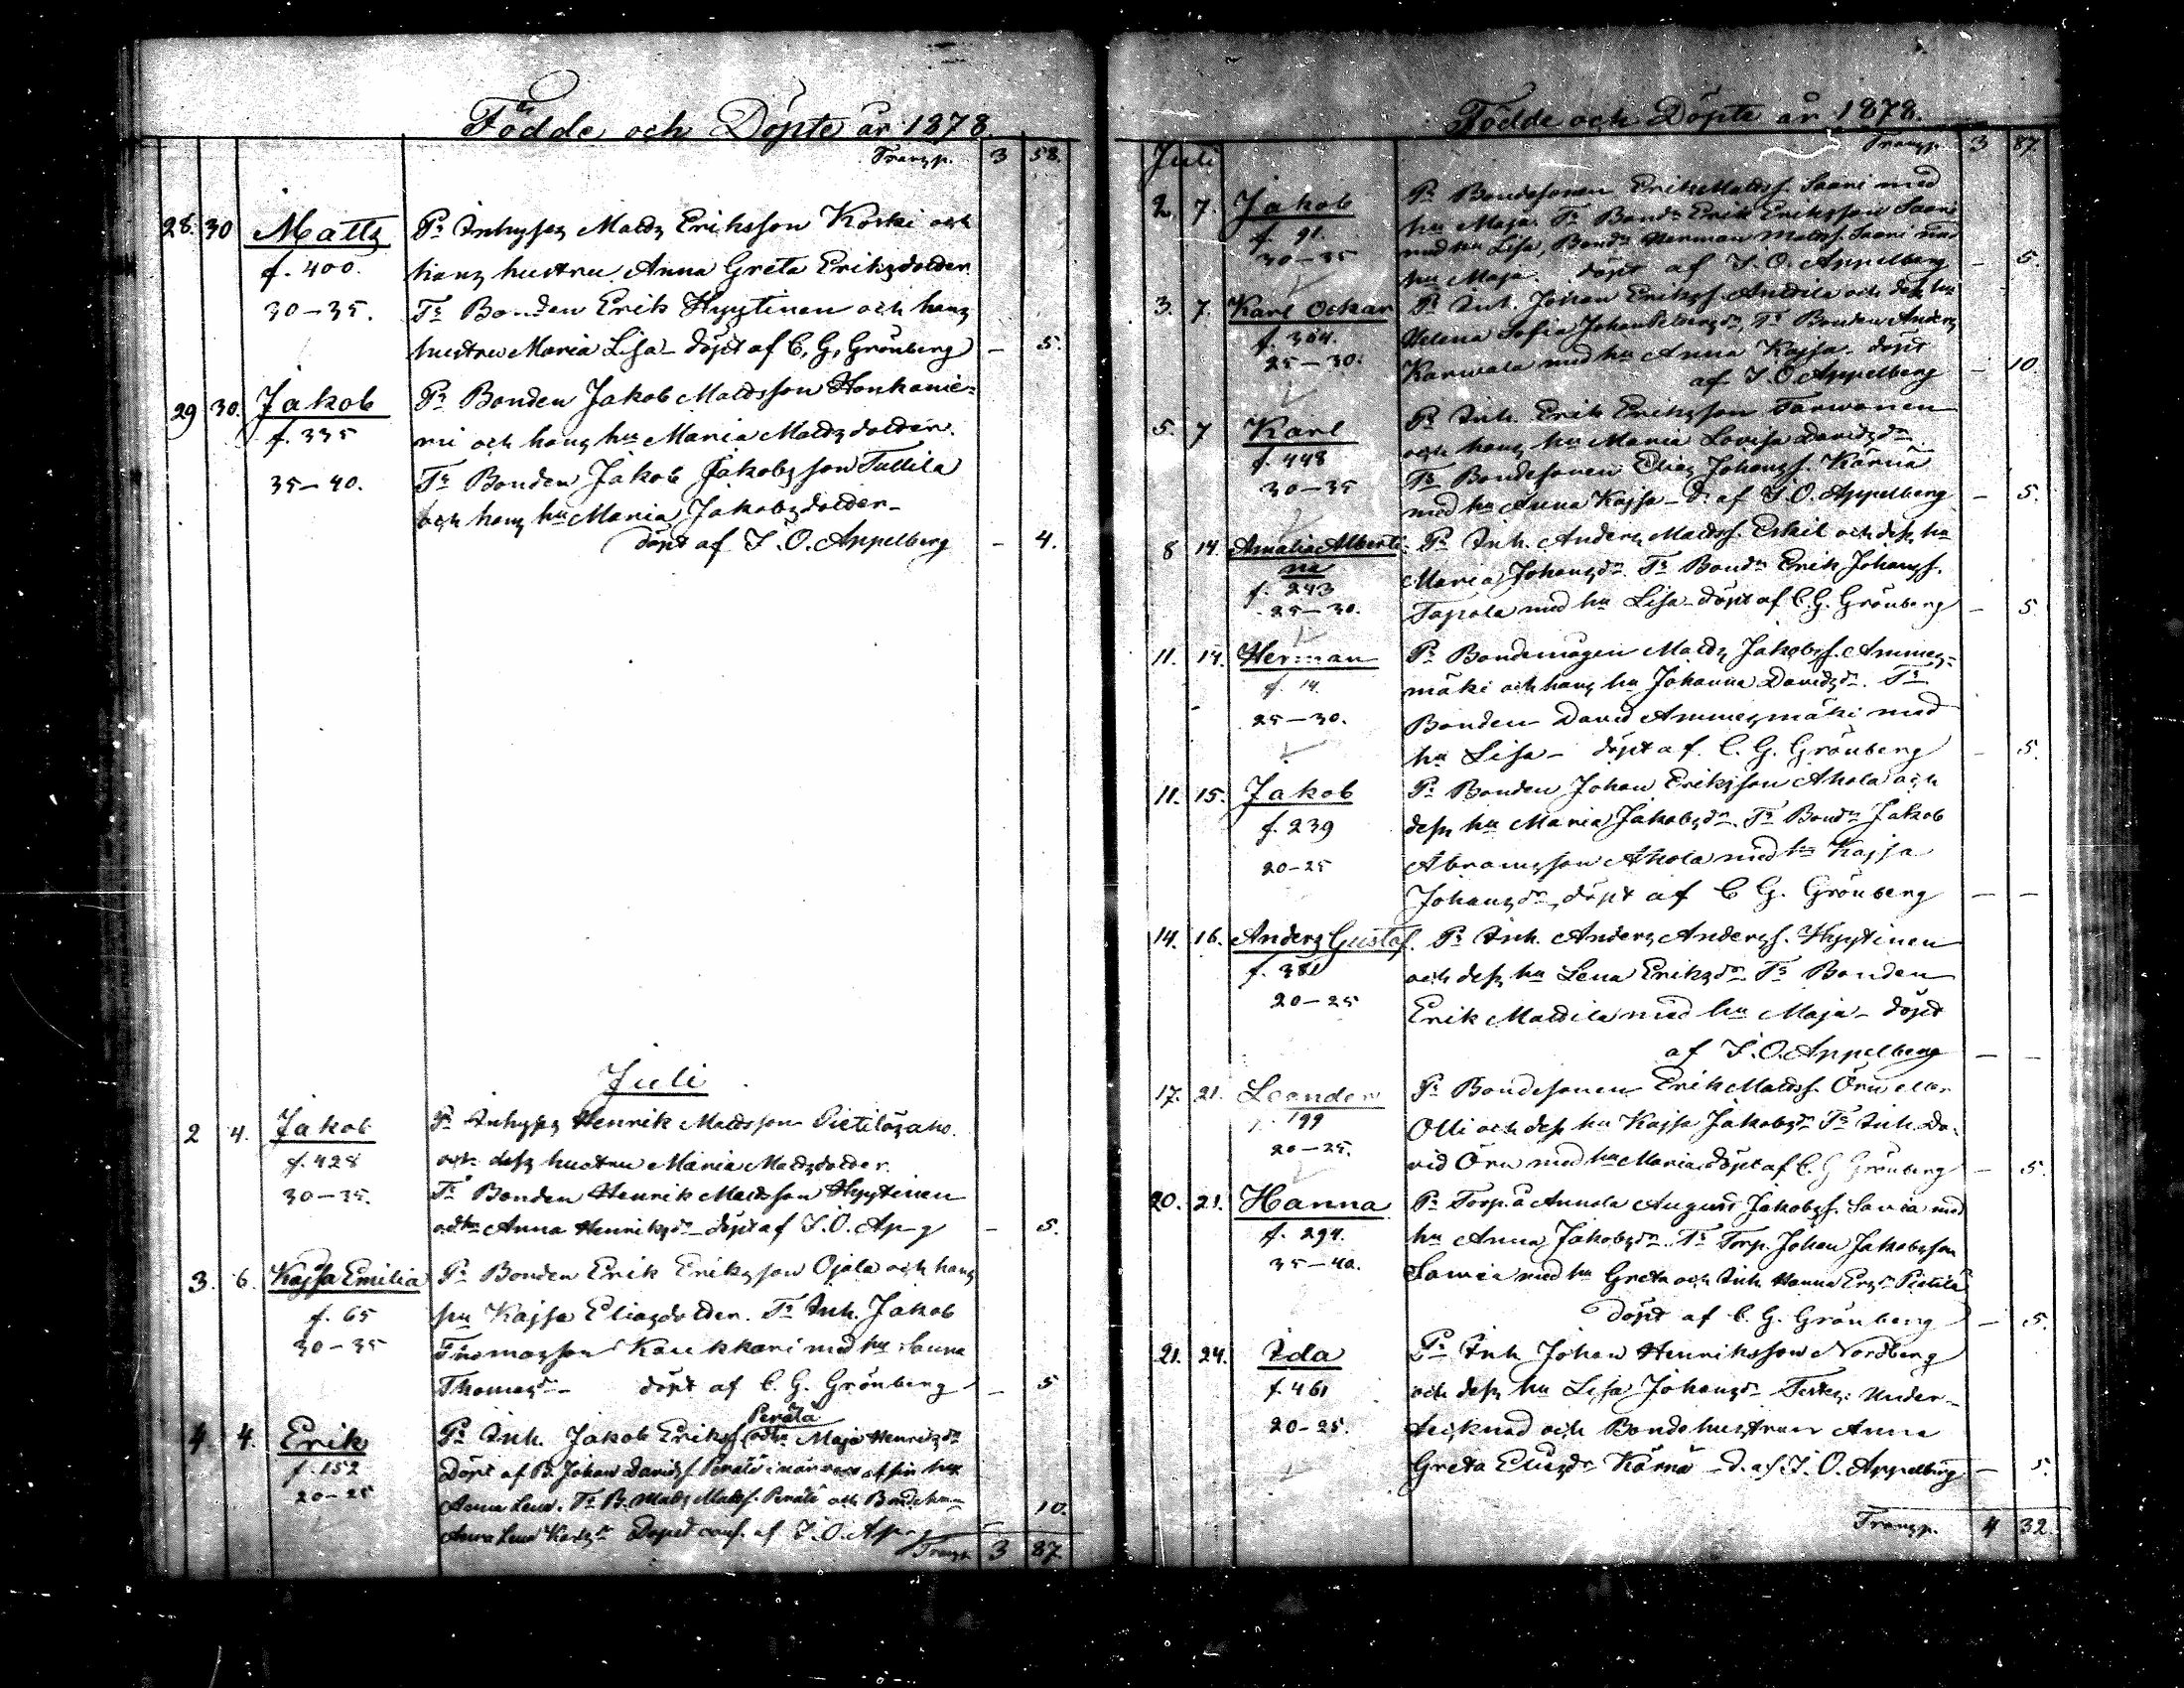 Födde och Döpte år 1878
Transp. 3 58.
28. 30 Matts Pr Inhyses Matts Eriksson Koski och
f. 400. hans hustru Anna Greta Eriksdotter
30–35. Tr Bonden Erik Hyytinen och hans
hustru Maria Lisa – döpt af C. G. Grönberg – 5.
29 30. Jakob Pr Bonden Jakob Mattsson Honkanie-
f. 335 mi och hans hu Maria Mattsdotter.
35–40. Tr Bonden Jakob Jakobsson Tullila
och hans hu Maria Jakobsdotter –
döpt af I. O. Appelberg – 4.
Juli
2 4. Jakob Pr Inhyses Henrik Mattsson Pietilösaho
f. 428 och dess hustru Maria Mattsdotter.
30–35. Tr Bonden Henrik Mattsson Hyytinen
och hu Anna Henriksdr – döpt af I. O. Ap–g – 5.
3. 6. Kajsa Emilia Pr Bonden Erik Eriksson Ojala och hans
f. 65 hu Kajsa Eliasdotter. Tr Inh. Jakob
30–35 Thomasson Kaukkari med hu Sanna
Thomasdr – döpt af C. G. Grönberg – 5
Perälä
4 4. Erik Pr Inh. Jakob Erikss. och hu Maja Henriksdr
f. 152 Döpt af B. Johan Davidss. Perälä i närvaro af sin hu
20–25 Anna Lena. Tr B. Matts Mattss. Perälä och Bondehu
Anna Lena Dopet conf. af I. O. Ap–g – 10.
Transp. 3 87
Födde och Döpte år 1878.
Juli Transp. 3 87.
2. 7. Jakob Pr Bondesonen Erik Mattss. Saari med
f. 91. hu Maja. Tr Bondn Erik Eriksson Saari
30–35 med hu Lisa, Bondn Herman Mattss. Saari med
hu Maja. döpt af I. O. Appelberg – 5.
3. 7. Karl Oskar Pr Inh. Johan Erikss. Anttila och dess hu
f. 304. Helena Sofia Johan Petersdr, Tr Bonden Anders
25–30. Karwala med hu Anna Kajsa. döpt
af I. O. Appelberg – 10
5. 7 Karl Pr Inh. Erik Eriksson Tarwonen
f. 448 och hans hu Maria Lovisa Davidsdr.
30–35 Tr Bondesonen Elias Johanss. Kärnä
med hu Anna Kajsa – D. af I. O. Appelberg – 5.
8 14. Amalia Alberti- Pr Inh. Anders Mattss. Eskil och dess hu
na Maria Johansdr. Tr Bondn Erik Johanss.
f. 243
25–30. Tapola med hu Lisa – döpt af C. G. Grönberg – 5
11. 14. Herman Pr Bondemågen Matts Jakobss. Ammes-
f. 14. mäki och hans hu Johanna Davidsdr. Tr
25–30. Bonden David Ammesmäki med
hu Lisa – döpt af C. G. Grönberg – 5.
11. 15. Jakob Pr Bonden Johan Eriksson Ahola och
f. 239 dess hu Maria Jakobsdr. Tr Bondn Jakob
20–25 Abramsson Ahola med hu Kajsa
Johansdr, döpt af C G. Grönberg – –
14. 16. Anders Gustaf. Pr Inh. Anders Anderss. Hyytinen
f. 381 och dess hu Lena Eriksdr Tr Bonden
20–25 Erik Mattila med hu Maja – döpt
af I. O. Appelberg – –
17. 21. Leander Pr Bondesonen Erik Mattss. Örn eller
199 Olli och dess hu Kajsa Jakobsdr Tr Inh. Da-
20–25. vid Örn med hu Maria, döpt af C. G Grönberg – 5.
20. 21. Hanna Pr Torp. å Annala August Jakobss. Savia med
f. 294. hu Anna Jakobsdr. Tr Torp. Johan Jakobsson
35–40. Sawia med hu Greta och Inh. Hanna Ersdr Pietilä
döpt af C. G. Grönberg – 5.
21. 24. Ida Pr Inh Johan Henriksson Nordberg
f. 461 och dess hu Lisa Johansdr Testes: Under-
20–25. tecknad och Bondehustrun Anna
Greta Eliasdr Kärnä – D. af I. O. Appelberg – 5.
Transp. 4 32.